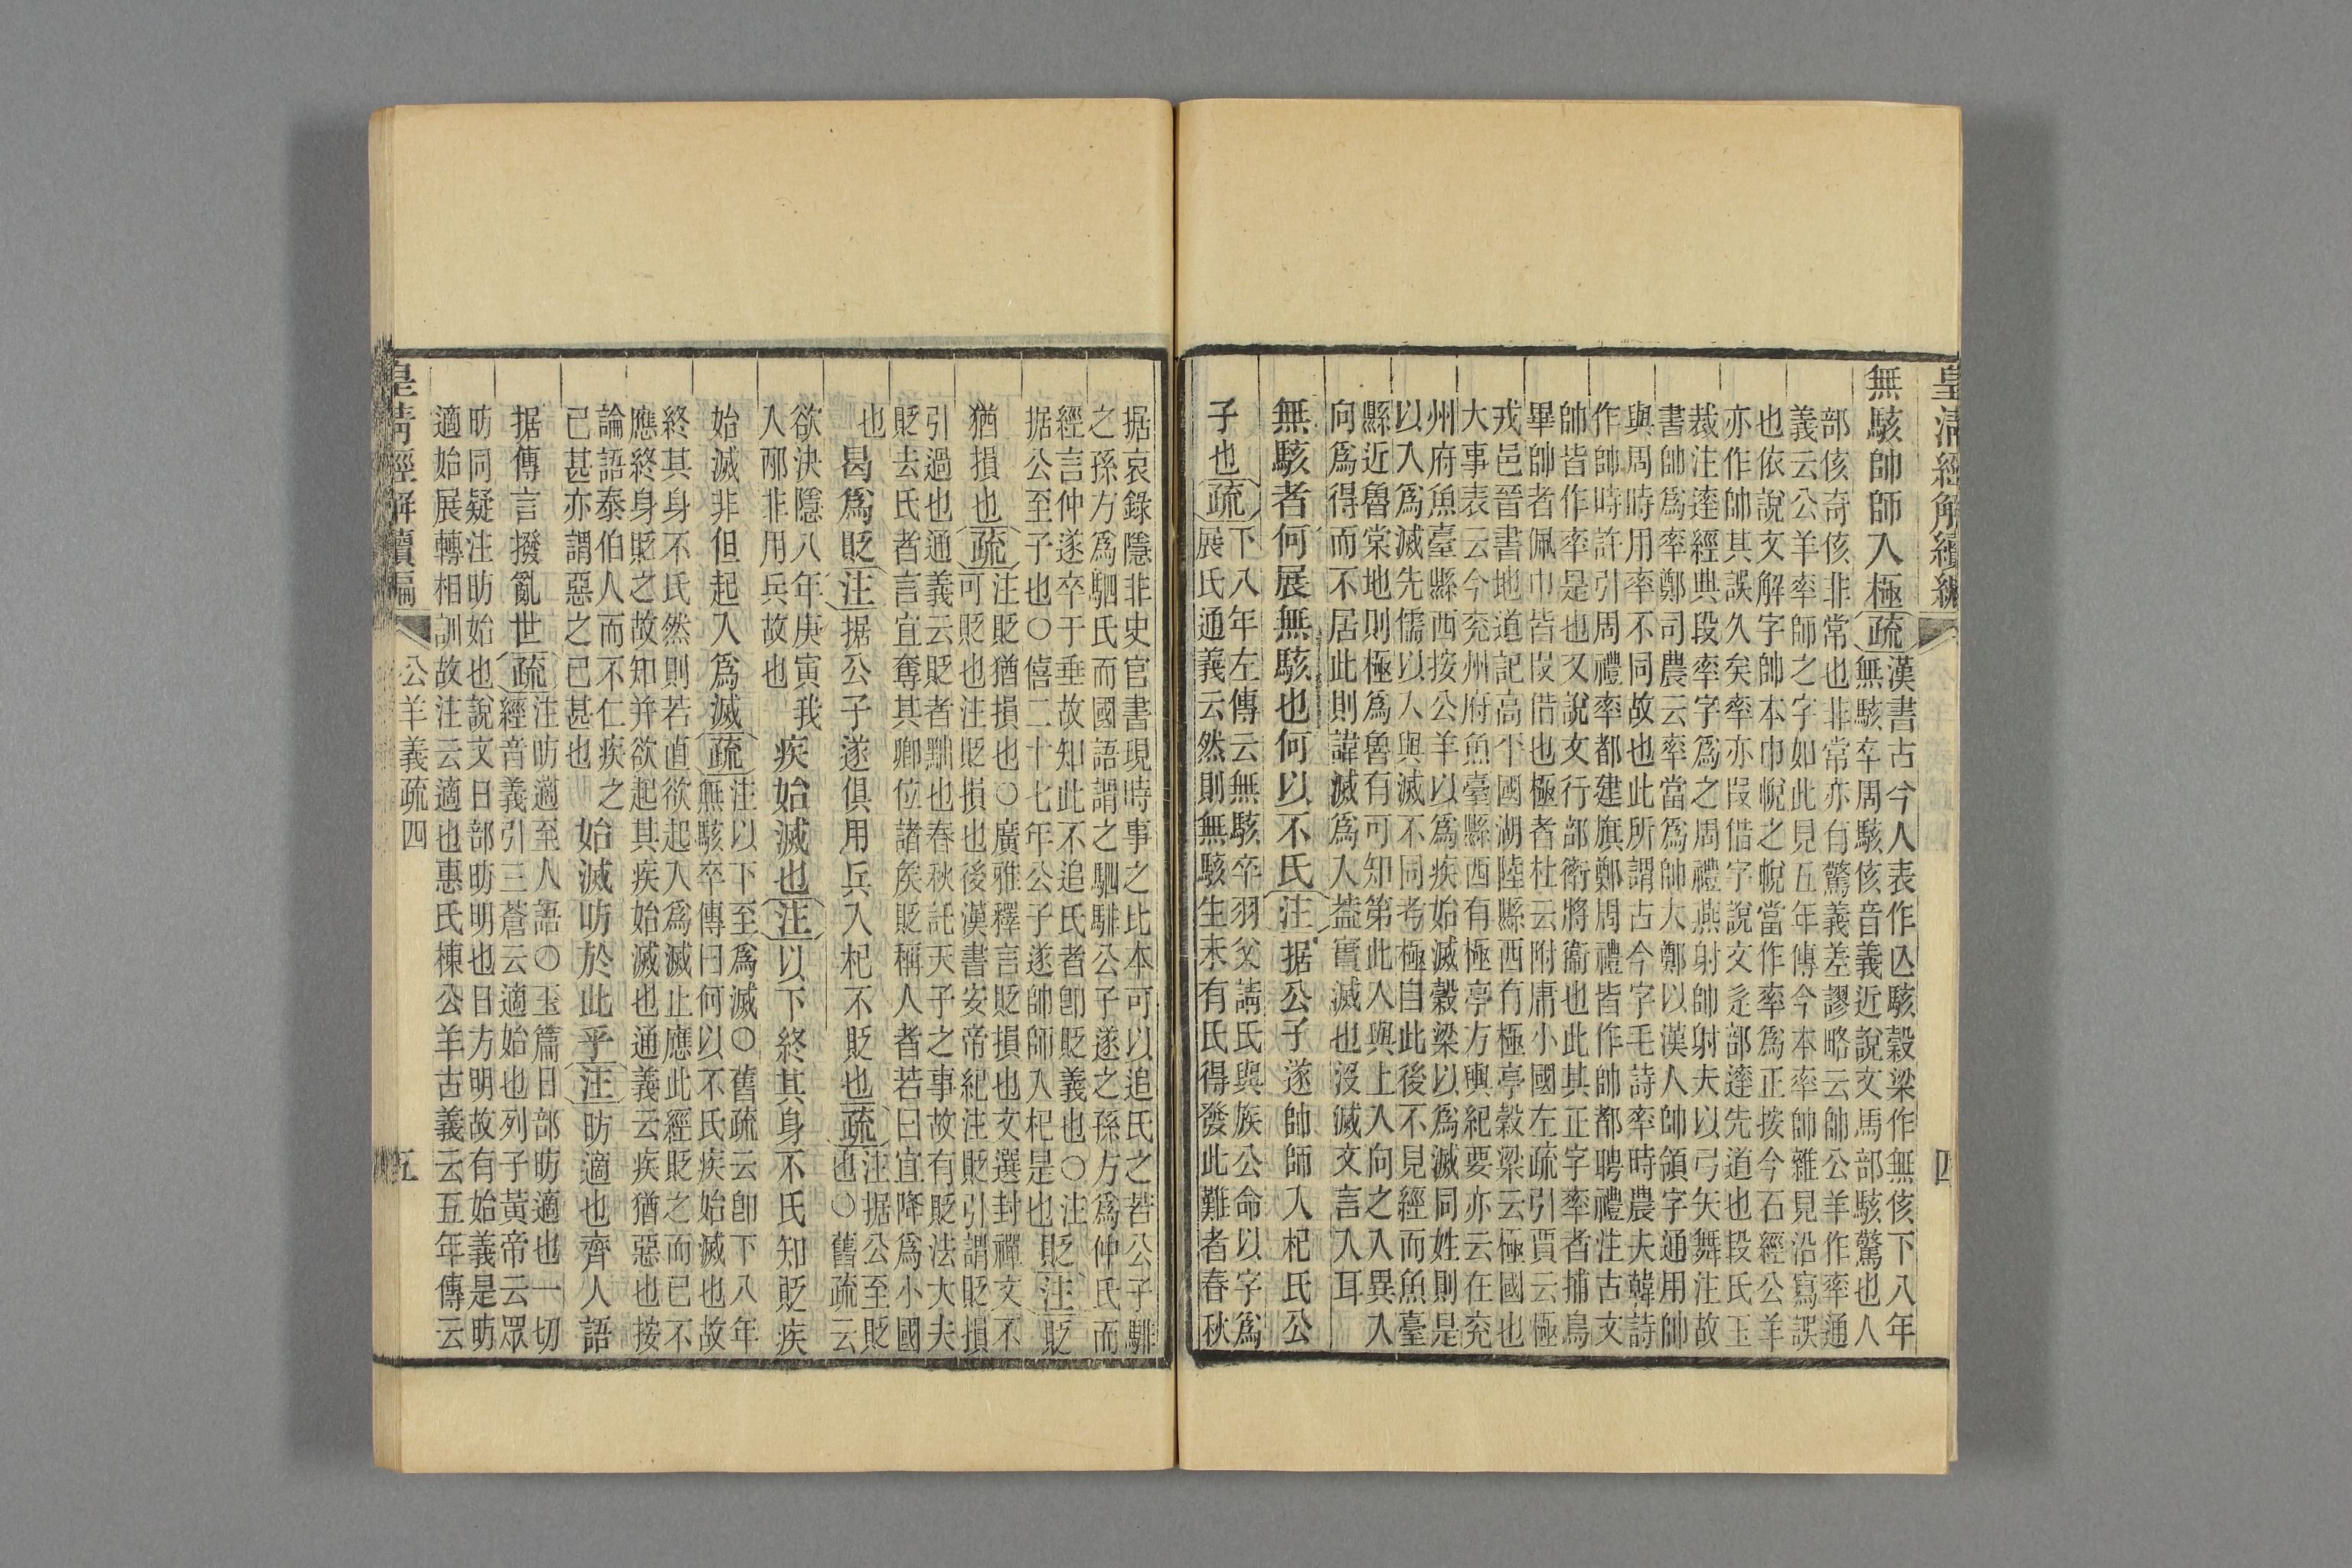 皇清經解續編 四
無駭帥師入極疏漢書古今人表作亾駭穀梁作無侅下八年
無駭卒周駭侅音義近說文馬部駭驚也人
部侅奇侅非常也非常亦有驚義差謬略云帥公羊作率通
義云公羊率師之字如此見五年傳今本率帥雜見沿寫誤
也依說文解字帥本巾帨之帨當作率爲正按今石經公羊
亦作帥其誤久矣率亦叚偕字說文辵部逹先道也段氏玉
裁注逹經典段率字爲之周禮燕射帥射夫以弓矢舞注故
書帥爲率鄭司農云率當爲帥大鄭以漢人帥領字通用帥
與周時用率不同故也此所謂古今字毛詩率時農夫韓詩
作帥時許引周禮率都建旗鄭周禮皆作帥都聘禮注古文
帥皆作率是也又說文行部衛將衞也此其正字率者捕鳥
畢帥者佩巾皆叚偕也極者杜云附庸小國左疏引賈云極
戎邑晉書地道記高平國湖陸縣西有極亭穀梁云極國也
大事表云今兖州府魚臺縣西有極亭方輿紀要亦云在兖
州府魚臺縣西按公羊以爲疾始滅穀梁以爲滅同姓則是
以入爲滅先儒以入與滅不同考極自此後不見經而魚臺
縣近魯棠地則極爲魯有可知第此入與上入向之入異入
向爲得而不居此則諱滅爲入葢實滅也沒滅文言入耳
無駭者何展無駭也何以不氏注据公子遂帥師入杞氏公
子也疏下八年左傳云無駭卒羽父請氏與族公命以字爲
展氏通義云然則無駭生未有氏得發此難者春秋
据哀錄隱非史官書現時事之比本可以追氏之若公子騑
之孫方爲駟氏而國語謂之駟騑公子遂之孫方爲仲氏而
經言仲遂卒于垂故知此不追氏者卽貶義也○注
据公至子也○僖二十七年公子遂帥師入杞是也貶注貶
猶損也疏注貶猶損也○廣雅釋言貶損也文選封禪文不
可貶也注貶損也後漢書安帝紀注貶引謂貶損
引過也通義云貶者黜也春秋託天子之事故有貶法大夫
貶去氏者言宜奪其卿位諸矦貶稱人者若曰宜降爲小國
也曷爲貶注据公子遂俱用兵入杞不貶也疏注据公至貶
也○舊疏云
欲決隱八年庚寅我
入邴非用兵故也疾始滅也注以下終其身不氏知貶疾
始滅非但起入爲滅疏注以下至爲滅○舊疏云卽下八年
無駭卒傳曰何以不氏疾始滅也故
終其身不氏然則若直欲起入爲滅止應此經貶之而已不
應終身貶之故知并欲起其疾始滅也通義云疾猶惡也按
論語泰伯人而不仁疾之
已甚亦謂惡之已甚也始滅昉於此乎注昉適也齊人語
据傳言撥亂世疏注昉適至人語○玉篇日部昉適也一切
經音義引三蒼云適始也列子黃帝云眾
昉同疑注昉始也說文日部昉明也日方明故有始義是昉
適始展轉相訓故注云適也惠氏棟公羊古義云五年傳云
皇清經解續編 公羊義疏四 五